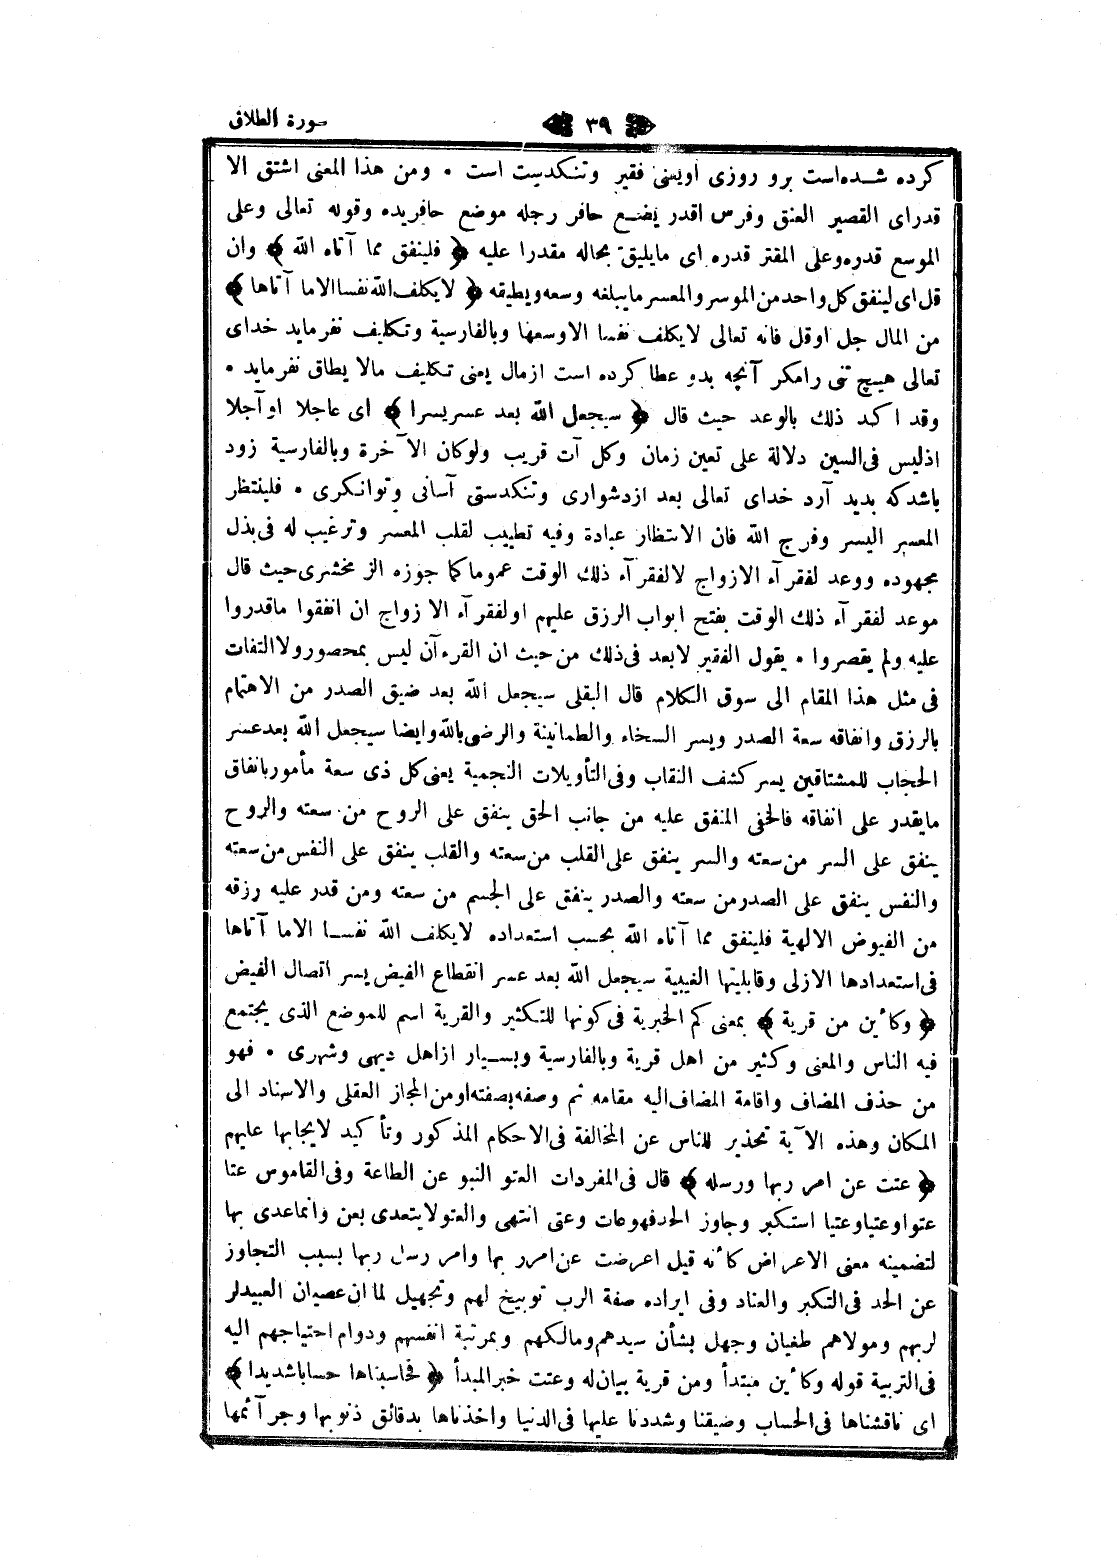 سورة الطلاق
٣٩
كرده شده‌است برو روزى اويعنى فقير وتنكدست است • ومن هذا المعنى اشتق الا
قدراى القصير العنق وفرس اقدر يضع حافر رجله موضع حافريده وقوله تعالى وعلى
الموسع قدره وعلى المقتر قدره اى مايليق بحاله مقدرا عليه ﴿ فلينفق مما آتاه الله ﴾ وان
قل اى لينفق كل واحد من الموسر والمعسر مايبلغه وسعه ويطيقه ﴿ لايكلف الله نفسا الاما آتاها ﴾
من المال جل اوقل فانه تعالى لايكلف نفسا الاوسعها وبالفارسية وتكليف نفرمايد خداى
تعالى هيچ تنى رامكر آنچه بدو عطا كرده است ازمال يعنى تكليف مالا يطاق نفرمايد •
وقد اكد ذلك بالوعد حيث قال ﴿ سيجعل الله بعد عسر يسرا ﴾ اى عاجلا اوآجلا
اذليس فى السين دلالة على تعين زمان وكل آت قريب ولوكان الآخرة وبالفارسية زود
باشدكه بديد آرد خداى تعالى بعد ازدشوارى وتنكدستى آسانى وتوانكرى • فلينتظر
المعسر اليسر وفرج الله فان الانتظار عبادة وفيه تطييب لقلب المعسر وترغيب له فى بذل
مجهوده ووعد لفقرآء الازواج لالفقرآء ذلك الوقت عموما كما جوزه الزمخشرى حيث قال
موعد لفقرآء ذلك الوقت بفتح ابواب الرزق عليهم اولفقرآء الازواج ان انفقوا ماقدروا
عليه ولم يقصروا • يقول الفقير لابعد فى ذلك من حيث ان القرءآن ليس بمحصور ولاالتفات
فى مثل هذا المقام الى سوق الكلام قال البقلى سيجعل الله بعد ضيق الصدر من الاهتمام
بالرزق وانفاقه سعة الصدر ويسر السخاء والطمانينة والرضى بالله وايضا سيجعل الله بعد عسر
الحجاب للمشتاقين يسر كشف النقاب وفى التأويلات النجمية يعنى كل ذى سعة مأمور بانفاق
مايقدر على انفاقه فالخفى المنفق عليه من جانب الحق ينفق على الروح من سعته والروح
ينفق على السر من سعته والسر ينفق على القلب من سعته والقلب ينفق على النفس من سعته
والنفس ينفق على الصدر من سعته والصدر ينفق على الجسم من سعته ومن قدر عليه رزقه
من الفيوض الالهية فلينفق مما آتاه الله بحسب استعداده لايكلف الله نفسا الاما آتاها
فى استعدادها الازلى وقابليتها الغيبية سيجعل الله بعد عسر انقطاع الفيض يسر اتصال الفيض
﴿ وكأين من قرية ﴾ بمعنى كم الخبرية فى كونها للتكثير والقرية اسم للموضع الذى يجتمع
فيه الناس والمعنى وكثير من اهل قرية وبالفارسية وبسيار ازاهل ديهى وشهرى • فهو
من حذف المضاف واقامة المضاف اليه مقامه ثم وصفه بصفته اومن المجاز العقلى والاسناد الى
المكان وهذه الآية تحذير للناس عن المخالفة فى الاحكام المذكور وتأكيد لايجابها عليهم
﴿ عتت عن امر ربها ورسله ﴾ قال فى المفردات العتو النبو عن الطاعة وفى القاموس عتا
عتوا وعتيا وعتيا استكبر وجاوز الحد فهوعات وعتى انتهى والعتو لايتعدى بعن وانماعدى بها
لتضمينه معنى الاعراض كأنه قيل اعرضت عن امرر بها وامر رسل ربها بسبب التجاوز
عن الحد فى التكبر والعناد وفى ايراده صفة الرب توبيخ لهم وتجهيل لما ان عصيان العبيدلر
لربهم ومولاهم طغيان وجهل بشأن سيدهم ومالكهم وبمرتبة انفسهم ودوام احتياجهم اليه
فى التربية قوله وكأين مبتدأ ومن قرية بيان له وعتت خبر المبدأ ﴿ فحاسبناها حسابا شديدا ﴾
اى ناقشناها فى الحساب وضيقنا وشددنا عليها فى الدنيا واخذناها بدقائق ذنوبها وجرآئمها